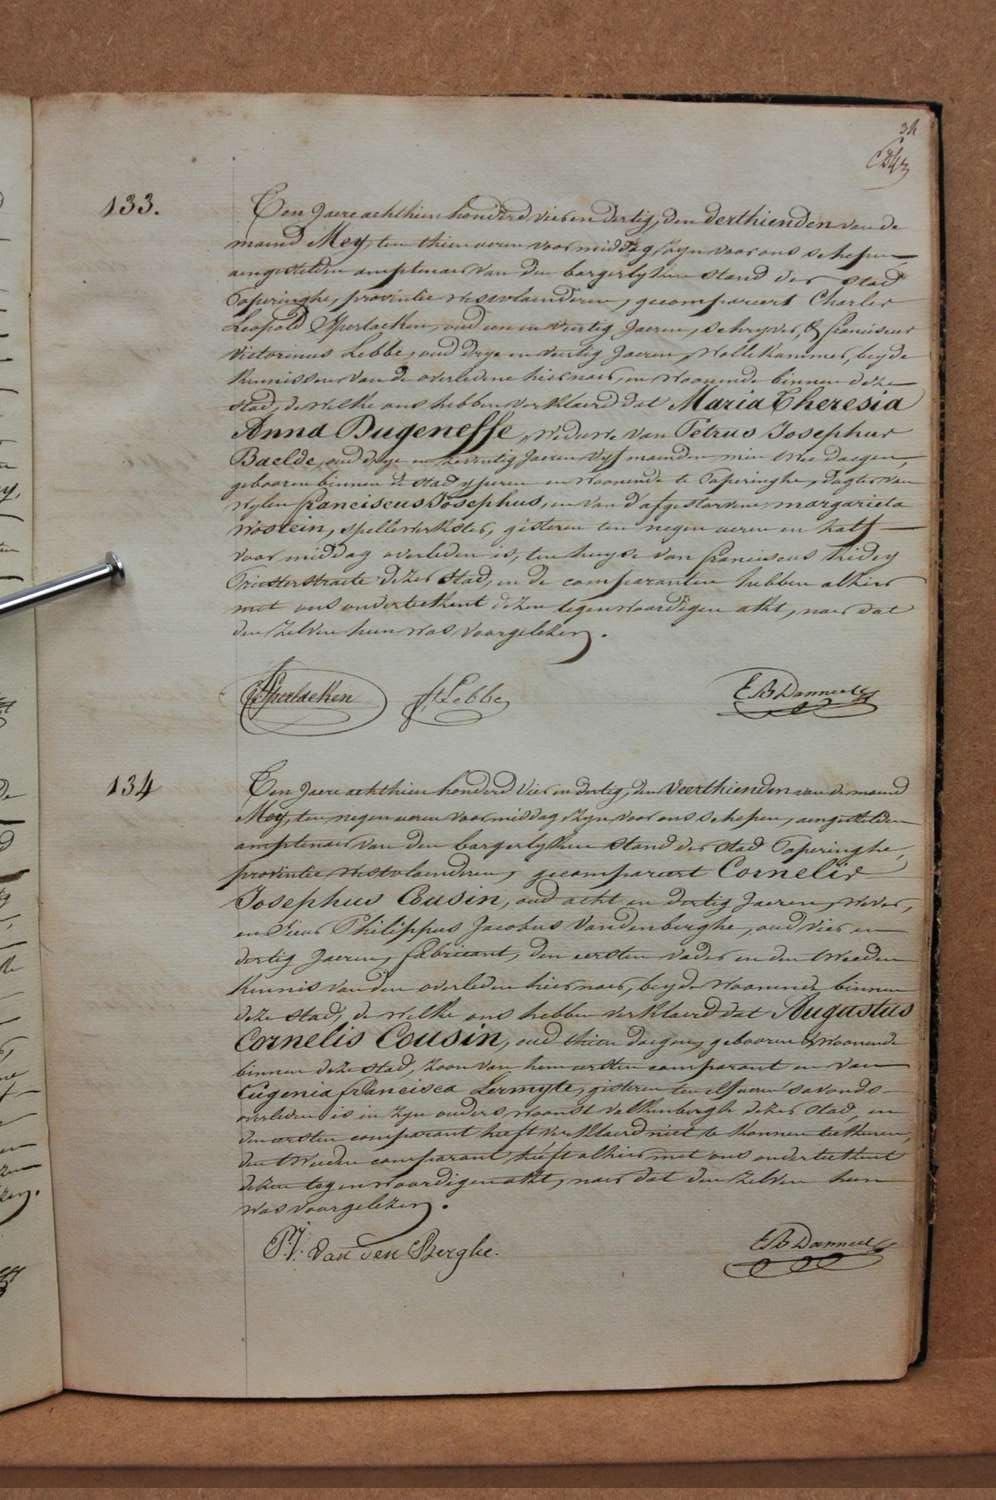 34
133.
Ten Jaere achthien honderd vier en dertig, den derthienden van de
maend Mey, ten thien ueren voormiddag, zyn voor ons schepen
aengestelden amptenaer van den borgerlyken stand der stad
Poperinghe, provintie westvlaenderen, gecompareert Charles
Leopold Sperlaeken, oud een en veertig Jaeren, schryver, & franciscus
Victorinus Lebbe, oud drye en veertig Jaeren, wollekammer, beyde
kennissen van de overledene hiernaer, en woonende binnen deze
stad, de welke ons hebben verklaerd dat Maria Theresia
Anna Dugeneffe, weduwe van Petrus Josephus
Baelde, oud drye en zeventig Jaeren vyf maenden min twee daegen,
gebooren binnen de stad yperen en woonende te Poperinghe, dogter van
wylen franciscus Josephus, en van d'afgestorvene margarieta
Wostein, spellewerkster, gisteren ten negen ueren en half
voor middag overleden is, ten huyse van franciscus
straete dezer stad, en de comparanten hebben alhier
met ons onderteekent dezen tegenwoordigen akt, naer dat
den zelven hun was voorgelezen.
Sperlaeken Lebbe E B Danneel
134
Ten Jaere achthien honderd vier en dertig, den veerthienden van de maend
Mey, ten negen ueren voormiddag, zyn voor ons schepen, aengestelden
amptenaer van den borgerlyken stand der stad Poperinghe,
provintie westvlaenderen, gecompareert Cornelis
Josephus Cousin, oud acht en dertig Jaeren, wever,
en Sieur Philippus Jacobus Vandenberghe, oud vier en
dertig Jaeren, fabricant, den eersten vader en den tweeden
kennis van den overleden hiernaer, beyde woonende binnen
deze stad, de welke ons hebben verklaerd dat Augustus
Cornelis Cousin, oud thien daegen, gebooren & woonende
binnen deze stad, zoon van hem eersten comparant en van
Eugenia francisca Lermyte, gisteren ten elf ueren 's avonds
overleden is in zyn ouders woonst valkenberghe dezer stad, en
den eersten comparant heeft verklaerd niet te konnen teekenen,
den tweeden comparant heeft alhier met ons onderteekent
dezen tegenwoordigen akt, naer dat den zelven hun
was voorgelezen.
P.J. Van den Berghe. E B Danneel